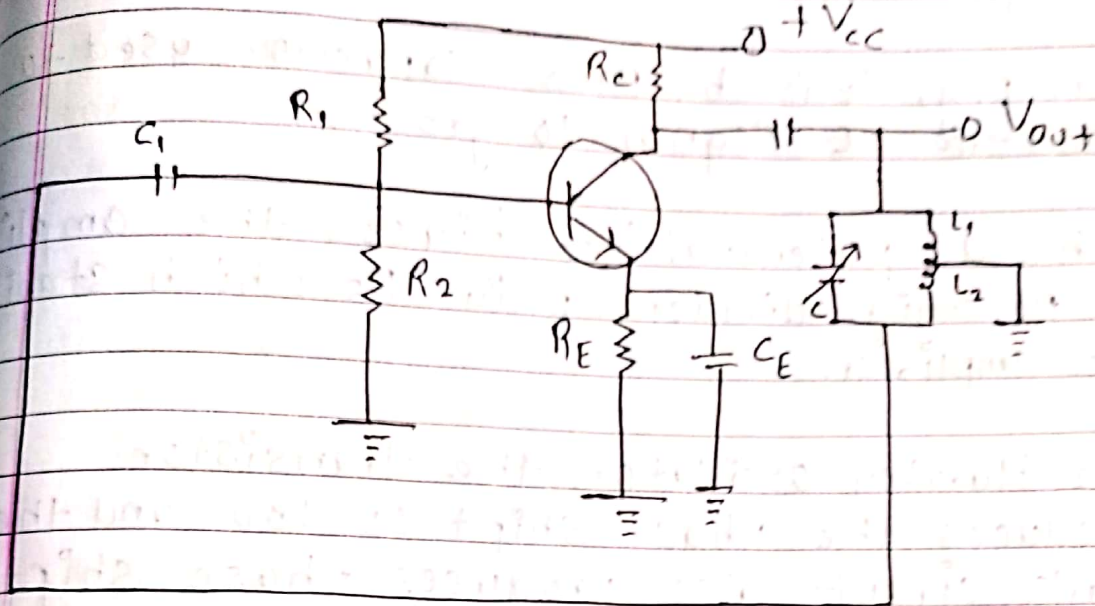 + Vcc
Rc
R1
C1
Vout
L1
R2
L2
C
RE
CE